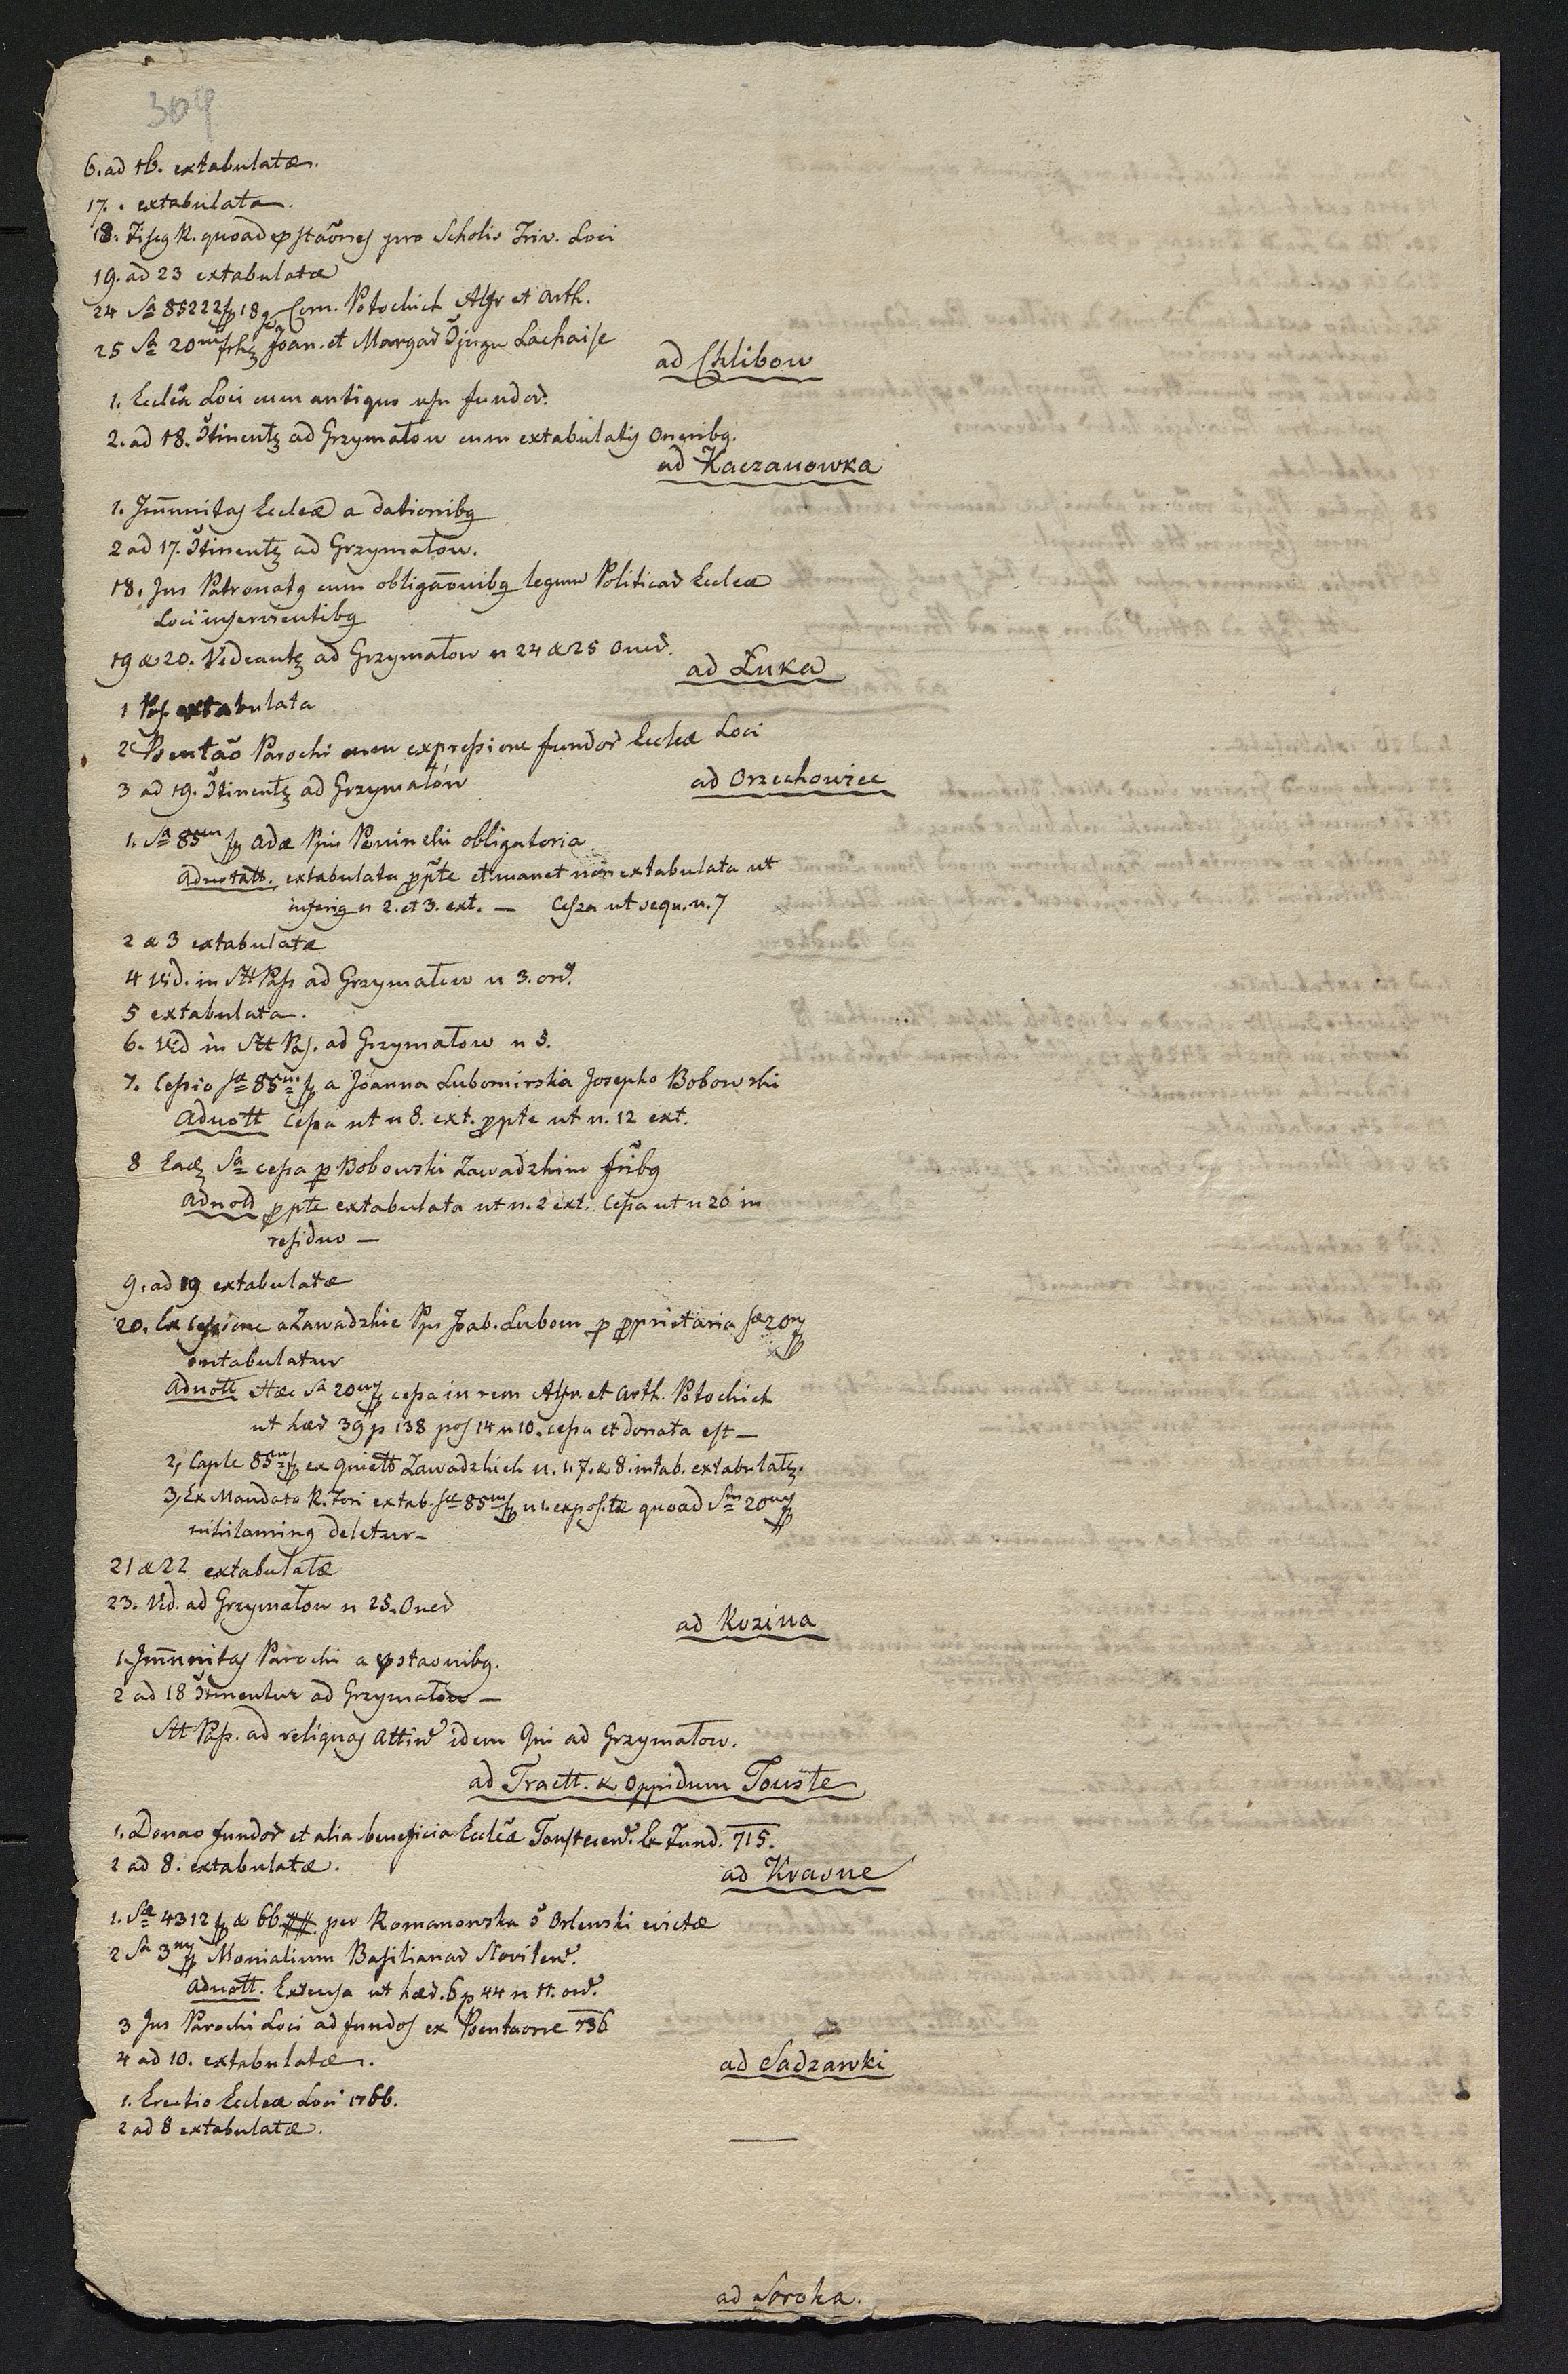 309
6. ad 16. extabulatæ.
17. . extabulata.
18. Fiscg R. quoad pstaões pro Scholis Triv. Loci
19. ad 23 extabulatæ
24 Sa 85222 fp 18 g Com. Potockich Alfr et Arth.
25 Sa 20m frhz Joan. et Margar Cjugu Lachaise
ad Chlibow
1. Ecclēa Loci cum antiquo usu fundor.
2. ad 18. Otinentz ad Grzymałow cum extabulatis Oneribg.
ad Kaczanowka
1. Immunitas Eccleæ a dationibg
2 ad 17. Otinentz ad Grzymałow.
18. Jus Patronatg cum obligaōnibg legum Politicar Eccleæ
Loci inservientibg
19 & 20. Videantz ad Grzymałow n 24 & 25 Oner.
ad Łuka
1 Pos. extabulata
2 Psentaō Parochi cum expressione fundor Eccleæ Loci
3 ad 19. Otinentz ad Grzymałow
ad Orzechowiec
1. Sa 85m fp Adæ Ppis Poninski obligatoria
Adnotatt. extabulata ppte et manet non extabulata ut
inferig n 2. et 3. ext. — Cessa ut sequ. n. 7
2 & 3 extabulatæ
4 Vid. in Stt Pass ad Grzymałow n 3. on.
5 extabulata.
6. Vid in Stt Pas. ad Grzymałow n 5.
7. Cessio sæ 85m fp a Joanna Lubomirska Josepho Bobowski
Adnott Cessa ut n 8. ext. ppte ut n. 12 ext.
8 Eadz Sa cessa p Bobowski Zawadzkim fribg
Adnott ppte extabulata ut n. 2 ext. Cessa ut n 20 in
residuo —
9. ad 19 extabulatæ
20. Ex Cessione a Zawadzkie Ppis Joab. Lubom p pprietaria sæ 20m fp
intabulatur
Adnott Hæc Sa 20m fp cessa in rem Alfr. et Arth. Potockich
ut hær 39 p 138 pos 14 n 10. cessa et donata est —
2, Caple 85m fp ex quiett Zawadzkich n. 1. 7. & 8. intab. extabulatz.
3, Ex Mandato R. Fori extab. sæ 85m fp n 1. expositæ quoad Sm 20m fp
nihilaming deletur —
21 & 22 extabulatæ
23. Vid. ad Grzymałow n 25. Oner
ad Kozina
1. Immunitas Parochi a pstaonibg.
2 ad 18 Otinentur ad Grzymałow —
Stt Pass. ad reliquas Attin idem qui ad Grzymałow.
ad Tractt. & Oppidum Touste
1. Donao fundor et alia beneficia Ecclēæ Toustecen. Ex Fund. 715.
2 ad 8. extabulatæ.
ad Krasne
1. Sæ 4312 fp & 66 ## per Romanowska o Orlewski evictæ
2 Sa 3m fp Monialium Basilianar Sloviten.
Adnott. Extensa ut hær. 6 p 44 n 11. on.
3 Jus Parochi Loci ad fundos ex Psentaone 736
4 ad 10. extabulatæ.
ad Sadzawki
1. Erectio Eccleæ Loci 1766.
2 ad 8 extabulatæ.
ad Soroka.